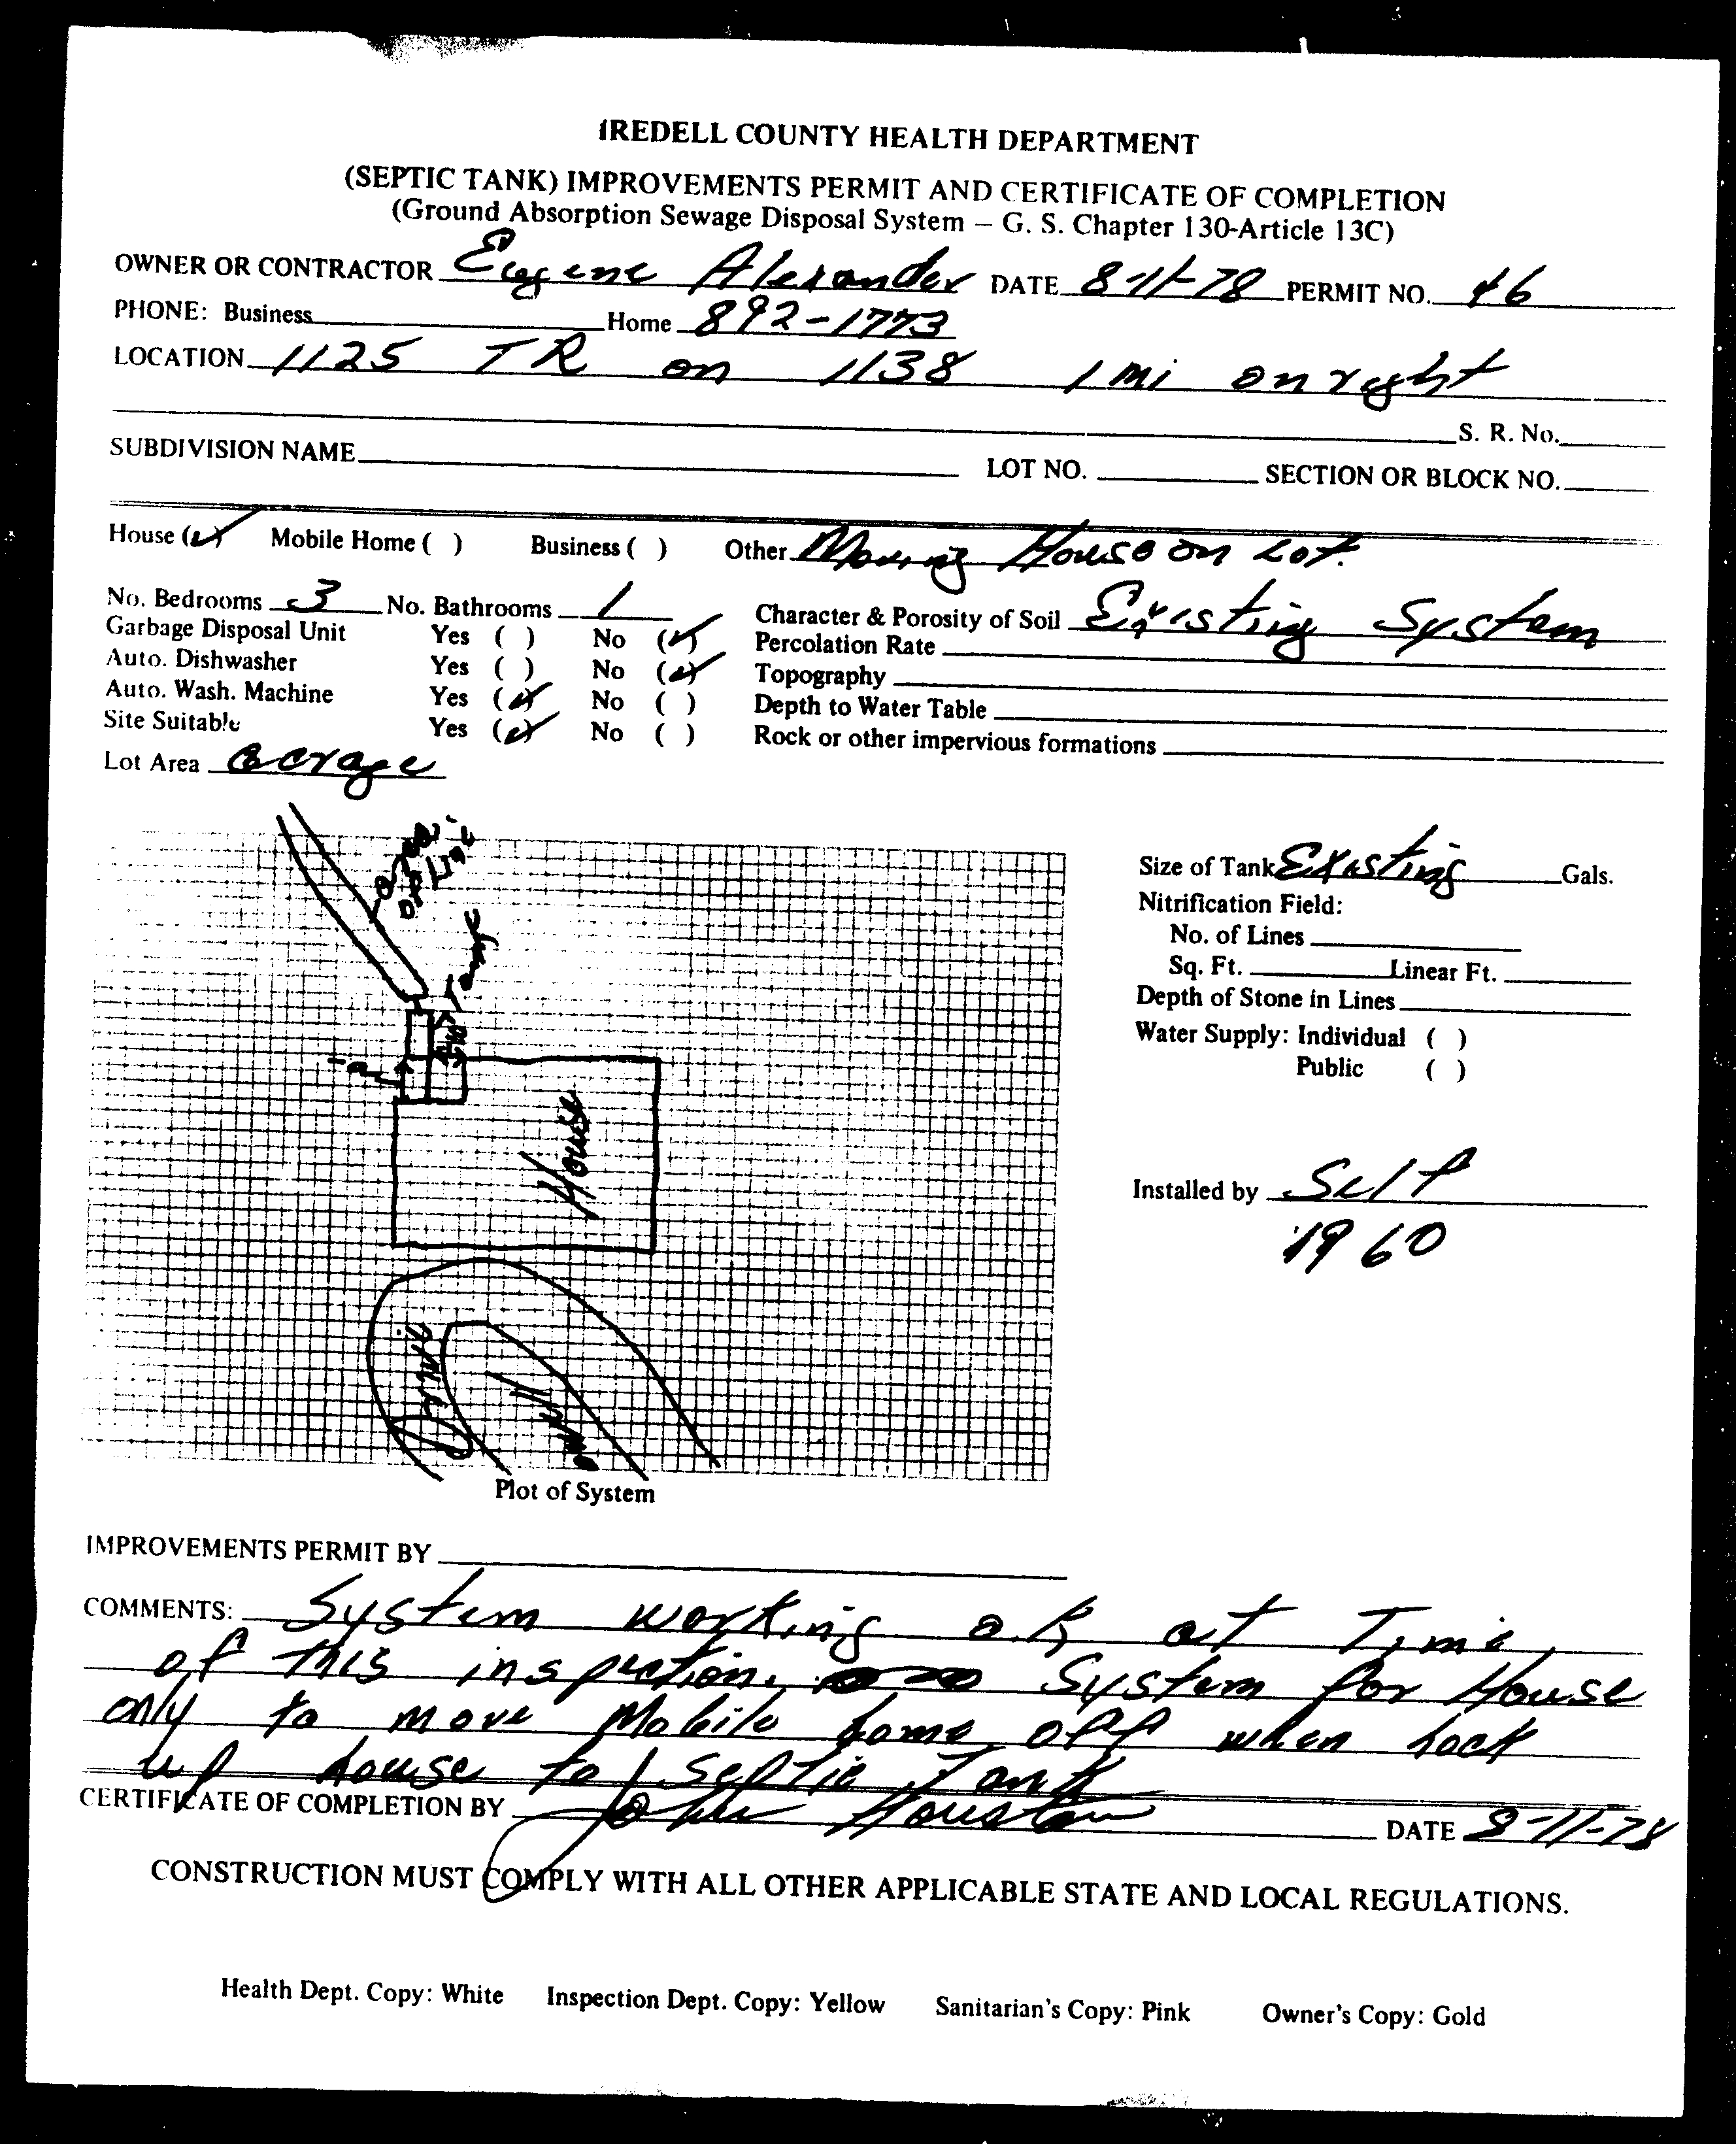 IREDELL COUNTY HEALTH DEPARTMENT
(SEPTIC TANK) IMPROVEMENTS PERMIT AND CERTIFICATE OF COMPLETION
(Ground Absorption Sewage Disposal System – G. S. Chapter 130-Article 13C)
OWNER OR CONTRACTOR Eugene Alexander DATE 8-11-78 PERMIT NO. 46
PHONE: Business Home 892-1773
LOCATION 1125 TR on 1138 1 mi on right
S. R. No.
SUBDIVISION NAME LOT NO. SECTION OR BLOCK NO.
House (✓) Mobile Home ( ) Business ( ) Other Moving House on Lot.
No. Bedrooms 3 No. Bathrooms 1 Character & Porosity of Soil Existing System
Garbage Disposal Unit Yes ( ) No (✓) Percolation Rate
Auto. Dishwasher Yes ( ) No (✓) Topography
Auto. Wash. Machine Yes (✓) No ( ) Depth to Water Table
Site Suitable Yes (✓) No ( ) Rock or other impervious formations
Lot Area acrage
Size of Tank Existing Gals.
Nitrification Field:
No. of Lines
Sq. Ft. Linear Ft.
Depth of Stone in Lines
Water Supply: Individual ( )
Public ( )
House
Installed by Self
1960
Drive
Plot of System
IMPROVEMENTS PERMIT BY
COMMENTS: System working o.k at Time
of this inspection. System for House
only to move Mobile home off when hook
up house to Septic Tank
CERTIFICATE OF COMPLETION BY John Houston DATE 8-11-78
CONSTRUCTION MUST COMPLY WITH ALL OTHER APPLICABLE STATE AND LOCAL REGULATIONS.
Health Dept. Copy: White Inspection Dept. Copy: Yellow Sanitarian's Copy: Pink Owner's Copy: Gold